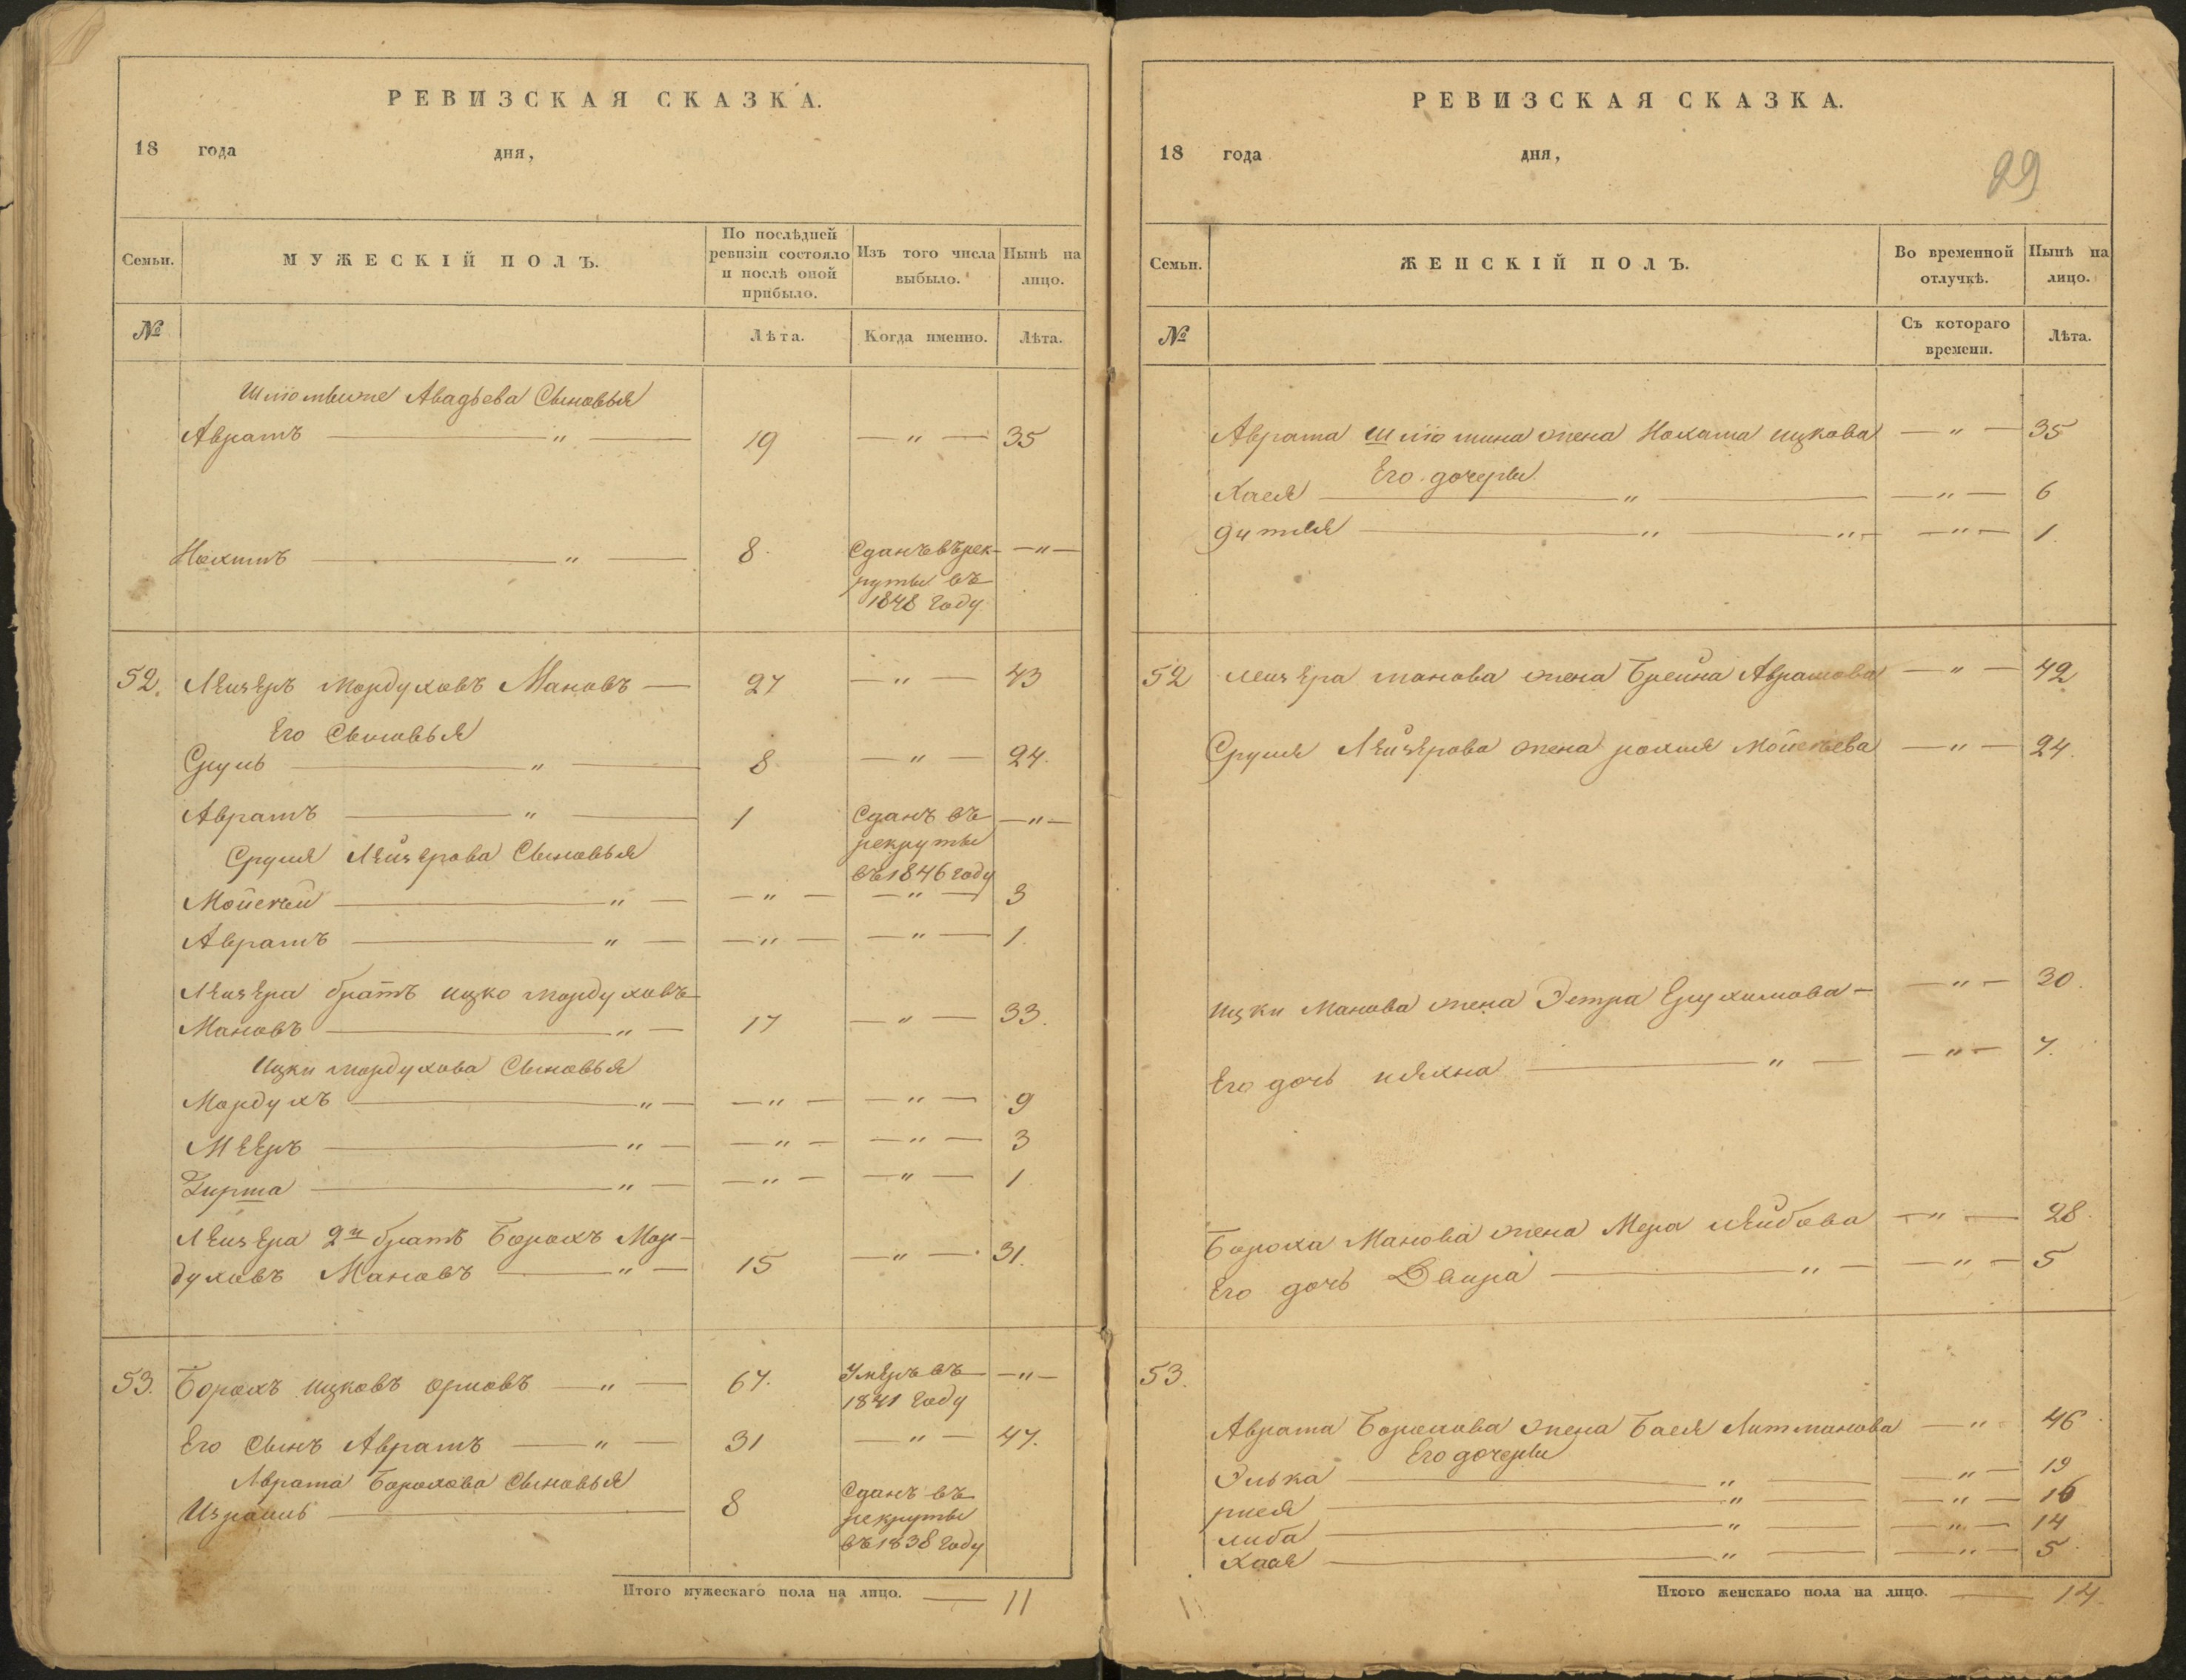 РЕВИЗСКАЯ СКАЗКА.
18 года дня,
Семьи. МУЖЕСКІЙ ПОЛЪ. По послѣдней ревизіи состояло и послѣ оной прибыло. Изъ того числа выбыло. Нынѣ на лицо.
№ Лѣта. Когда именно. Лѣта.
Авадьева Сыновья
Аврамъ — " — 19 — " — 35
Нохимъ — " — 8 Сданъ въ рек- — " —
руты въ
1848 году
52. Лейзеръ Мордуховъ Мановъ — 27 — " — 43
Его Сыновья
Сруль — " — 8 — " — 24.
Аврамъ — " — 1 Сданъ въ — " —
рекруты
въ 1846 году
Сруля Лейзерова Сыновья
Мойсей — " — — " — — " — 3
Аврамъ — " — — " — — " — 1.
Лейзера братъ Ицко Мордуховъ
Мановъ — " — 17 — " — 33.
Ицки Мордухова Сыновья
Мордухъ — " — — " — — " — 9
Мееръ — " — — " — — " — 3
— " — — " — — " — 1
Лейзера 2й братъ Борохъ Мор-
духовъ Мановъ — " — 15 — " — 31.
53. Борохъ Ицковъ — " — 67. Умеръ въ — " —
1841 году
Его сынъ Аврамъ — " — 31 — " — 47.
Аврама Борохова Сыновья
Израиль — 8 Сданъ въ
рекруты
въ 1838 году
Итого мужескаго пола на лицо. — 11
РЕВИЗСКАЯ СКАЗКА.
18 года дня,
29
Семьи. ЖЕНСКІЙ ПОЛЪ. Во временной отлучкѣ. Нынѣ на лицо.
№ Съ котораго времени. Лѣта.
Аврама жена Нохама Ицкова — " — 35
Его дочери
Хася — " — — " — 6
— " — — " — 1.
52 Лейзера Манова жена Брейна Аврамова — " — 42
Сруля Лейзерова жена Рохля Мойсеева — " — 24.
Ицки Манова жена Эстра Ерухимова — — " — 30.
Его дочь — " — — " — 7.
Бороха Манова жена Мера Лейбова — " — 28.
Его дочь Двира — " — — " — 5
53.
Аврама Борохова жена Бася Литманова — " 46
Его дочери
Элька — " — — " — 19
Рися — " — — " — 16
Либа — " — — " — 14
Хая — " — — " — 5
Итого женскаго пола на лицо. — 14